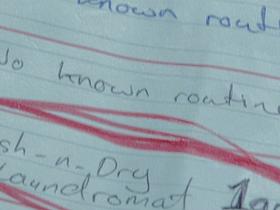 known rout
No known routine
sh-n-Dry
Laundromat 1a